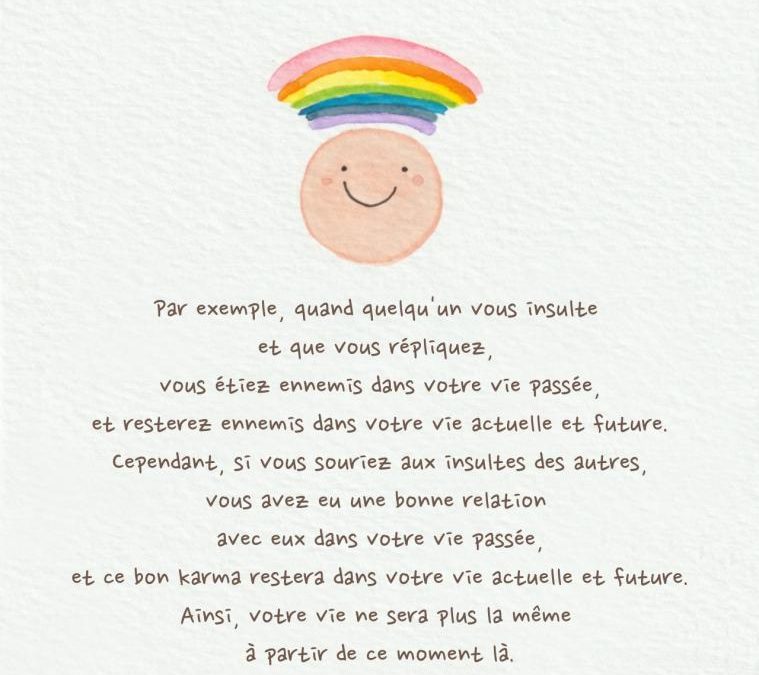 Par exemple, quand quelqu'un vous insulte
et que vous répliquez,
vous étiez ennemis dans votre vie passée,
et resterez ennemis dans votre vie actuelle et future.
Cependant, si vous souriez aux insultes des autres,
vous avez eu une bonne relation
avec eux dans votre vie passée,
et ce bon karma restera dans votre vie actuelle et future.
Ainsi, votre vie ne sera plus la même
à partir de ce moment là.